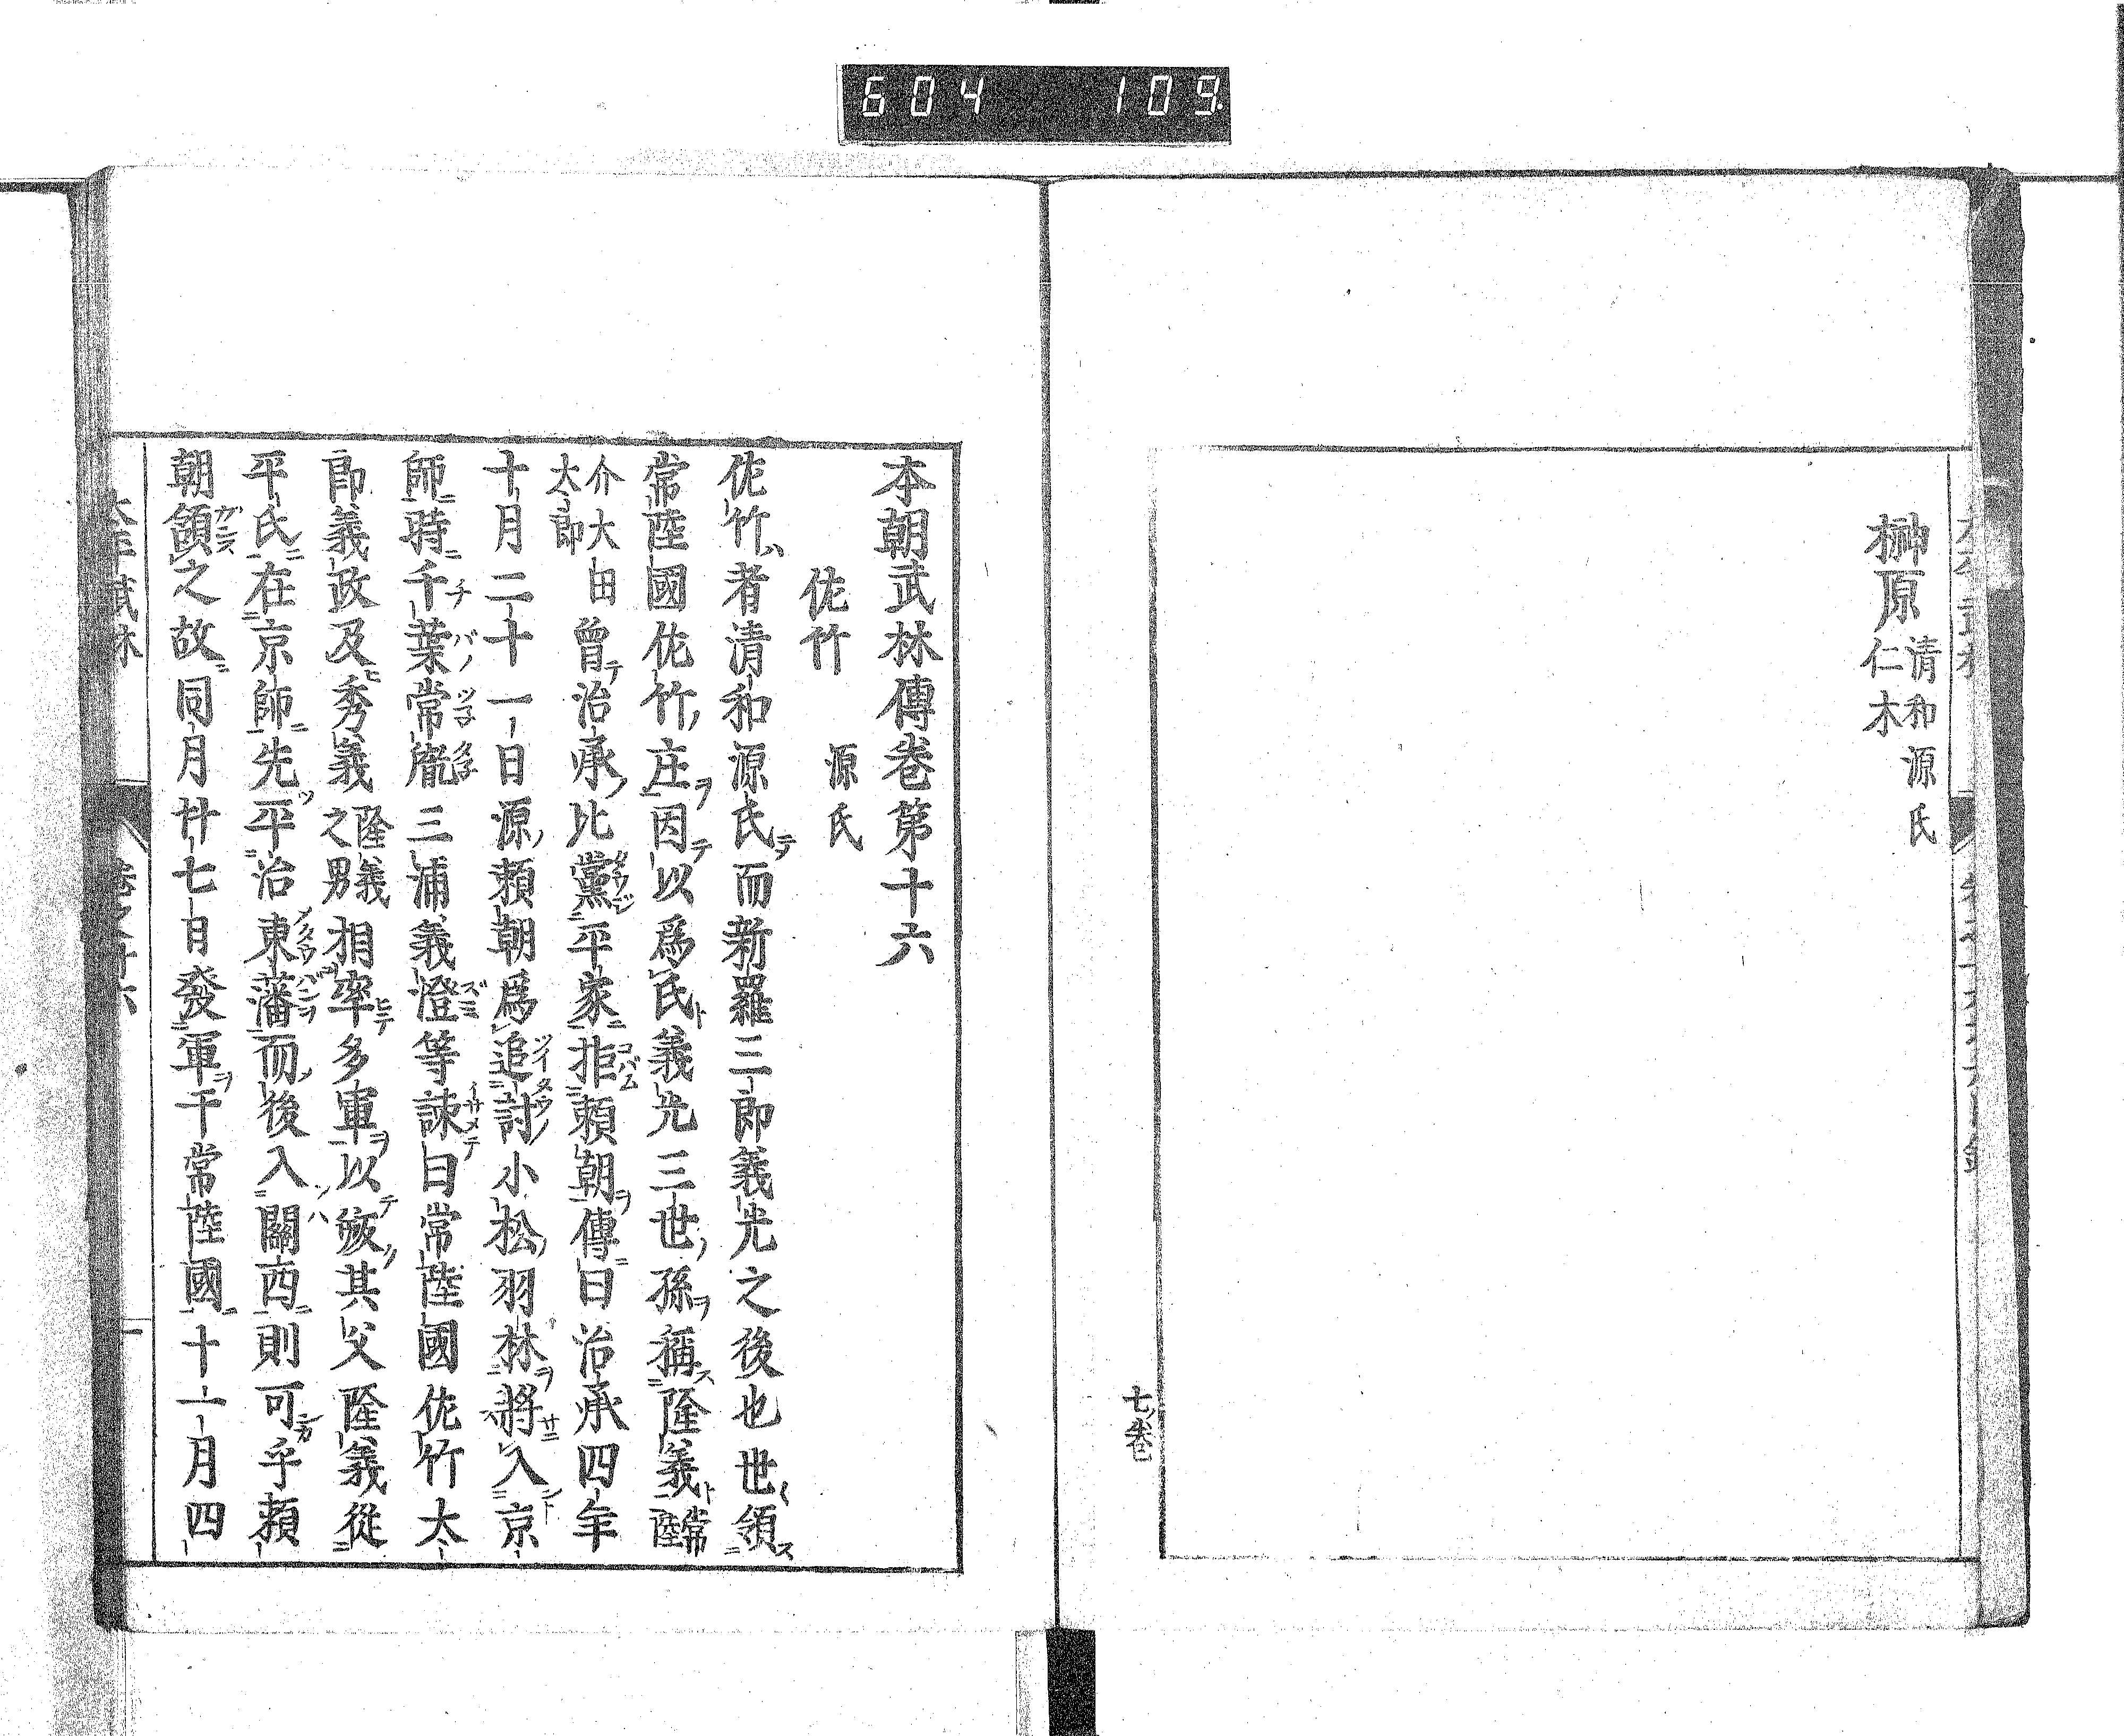 604 109
榊原 清和源氏
仁木
七ノ巻
本朝武林傳巻第十六
佐竹 源氏
佐竹者清和源氏而新羅三郎義光之後也世領
常陸國佐竹庄因以爲氏義光三世孫稱隆義常陸
介大田
太郎曾治承比黨平家拒頼朝傳曰治承四年
十月二十一日源頼朝爲追討小松羽林將入京
師時千葉常胤三浦義澄等諌曰常陸國佐竹太
郎義政及秀義隆義之男相率多軍以叛其父隆義從
平氏在京師先平治東藩而後入關西則可乎頼
朝頷之故同月廿七日發軍于常陸國十一月四